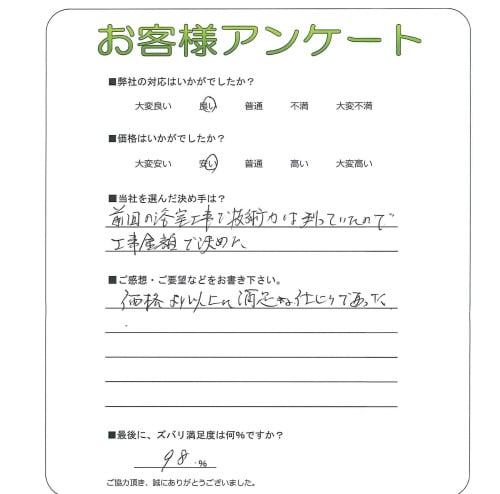 お客様アンケート
■弊社の対応はいかがでしたか？
大変良い 良い 普通 不満 大変不満
■価格はいかがでしたか？
大変安い 安い 普通 高い 大変高い
■当社を選んだ決め手は？
前回の浴室工事で技術力は判っていたので
工事金額で決めた
■ご感想・ご要望などをお書き下さい。
価格より以上に満足な仕上りであった。
■最後に、ズバリ満足度は何%ですか？
98.%
ご協力頂き、誠にありがとうございました。